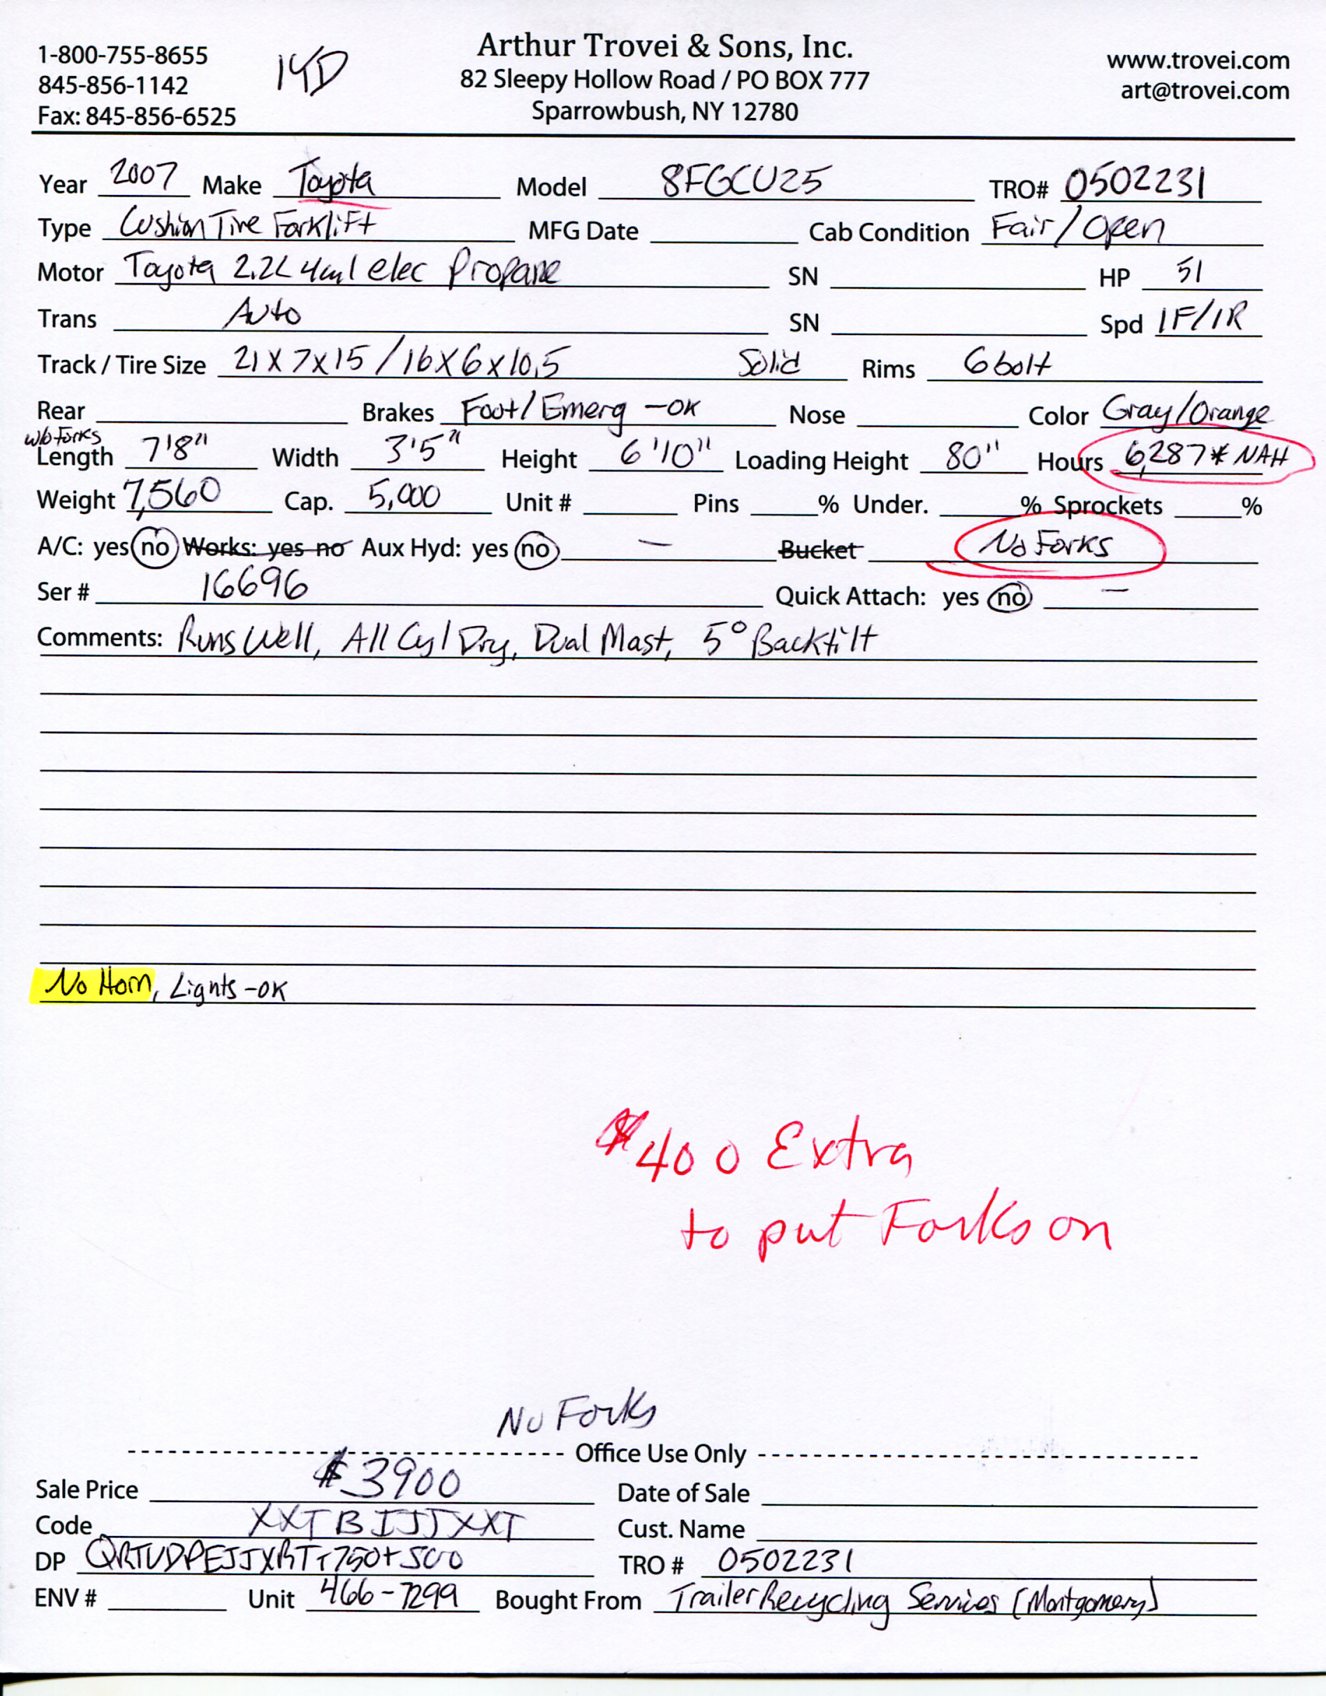 1-800-755-8655
845-856-1142
Fax: 845-856-6525
14D
Arthur Trovei & Sons, Inc.
82 Sleepy Hollow Road / PO BOX 777
Sparrowbush, NY 12780
www.trovei.com
art@trovei.com
Year 2007 Make Toyota Model 8FGCU25 TRO# 0502231
Type Cushion Tire Forklift MFG Date Cab Condition Fair/Open
Motor Toyota 2.2L 4cyl elec Propane SN HP 51
Trans Auto SN Spd 1F/1R
Track / Tire Size 21X7X15/16X6X10.5 Solid Rims 6 bolt
Rear Brakes Foot/Emerg -OK Nose Color Gray/Orange
w/o Forks
Length 7'8" Width 3'5" Height 6'10" Loading Height 80" Hours 6,287* NAH
Weight 7,560 Cap. 5,000 Unit # Pins % Under. % Sprockets %
A/C: yes no Works: yes no Aux Hyd: yes no — Bucket No Forks
Ser # 16696 Quick Attach: yes no —
Comments: Runs Well, All Cyl Dry, Dual Mast, 5° Backtilt
No Horn, Lights -OK
$400 Extra
to put Forks on
No Forks
Office Use Only
Sale Price $3900 Date of Sale
Code XXTBIJJXXT Cust. Name
DP +750+500 TRO # 0502231
ENV # Unit 466-7299 Bought From Trailer Recycling Services (Montgomery)